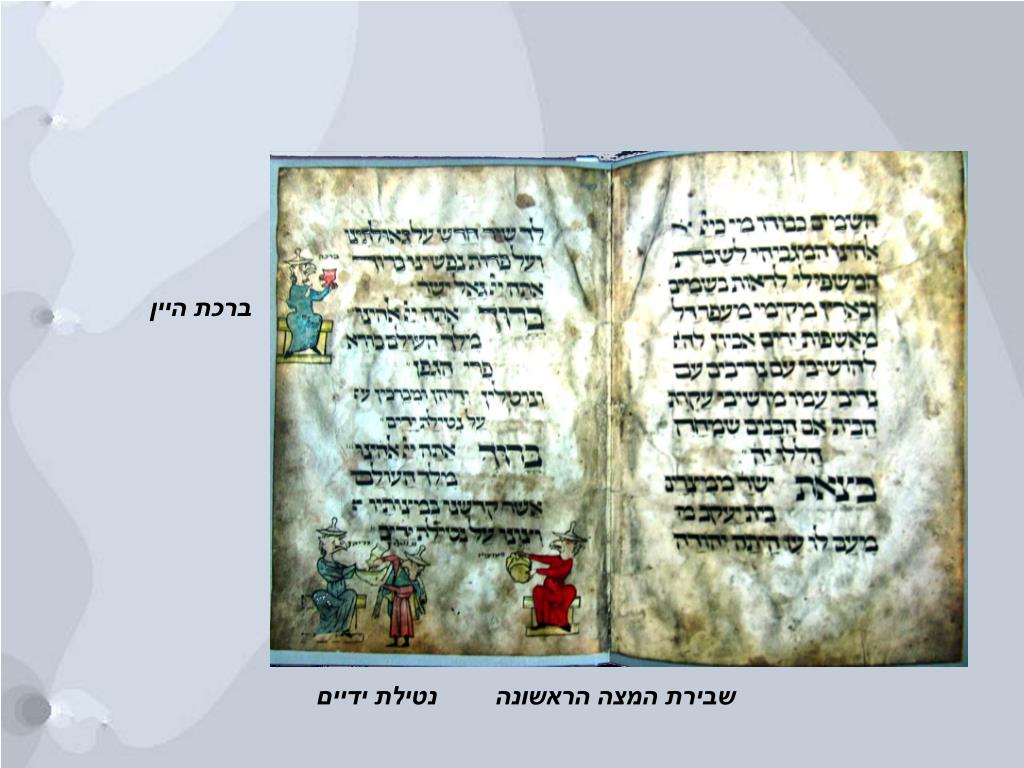 השמים כבודו מי כיי א׳
אלהינו המגביהי לשבת
המשפילי לראות בשמים
ובארץ מקימי מעפר דל
מאשפות ירים אביון להו
להושיבי עם נדיבים עם
נדיבי עמו מושיבי עקרת
הבית אם הבנים שמחה
הללו יה
בצאת ישר׳ ממצרים
בית יעקב מ
מעם לועז היתה יהודה
לך שיר חדש על גאולתינו
ועל פדות נפשינו ברוך
אתה יי גאל ישר׳
ברוך אתה יי אלהינו
מלך העולם בורא
פרי הגפן
ונוטלין ידיהן ומברכין
על נטילת ידים
ברוך אתה יי אלהינו
מלך העולם
אשר קדשנו במצותיו
וצונו על נטילת ידים
ברכת היין
שבירת המצה הראשונה
נטילת ידיים